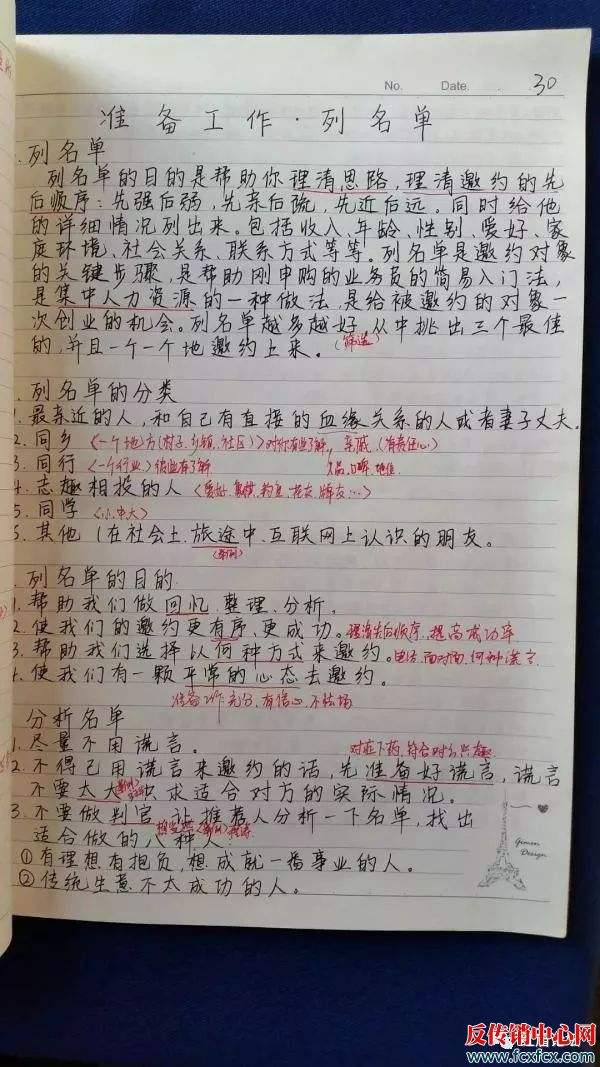 No. Date. 30
准备工作·列名单
列名单
列名单的目的是帮助你理清思路,理清邀约的先
后顺序:先强后弱,先亲后疏,先近后远。同时给他
的详细情况列出来。包括收入、年龄、性别、爱好、家
庭环境、社会关系、联系方式等等。列名单是邀约对象
的关键步骤,是帮助刚申购的业务员的简易入门法,
是集中人力资源的一种做法,是给被邀约的对象一
次创业的机会。列名单越多越好,从中挑出三个最佳
的,并且一个一个地邀约上来。(筛选)
列名单的分类
1.最亲近的人,和自己有直接的血缘关系的人或者妻子丈夫。
2.同乡(一个地方(村子、乡镇、社区))对你有些了解 亲戚(有责任心)
3.同行(一个行业)彼此有了解 人品、口碑、地位
4.志趣相投的人
5.同学(小、中、大)
6.其他(在社会上、旅途中、互联网上认识的朋友。
(举例)
列名单的目的
1.帮助我们做回忆、整理、分析。
2.使我们的邀约更有序、更成功。理清先后顺序,提高成功率
3.帮助我们选择以何种方式来邀约。电话、面对面、何种谎言
4.使我们有一颗平常的心态去邀约。
准备工作充分,有信心,不怯场
分析名单
1.尽量不用谎言。 对症下药,符合对方兴趣
2.不得已用谎言来邀约的话,先准备好谎言,谎言
不要太大,只求适合对方的实际情况。
3.不要做判官,让推荐人分析一下名单,找出
适合做的八种人:
①有理想有抱负,想成就一番事业的人。
②传统生意不太成功的人。
Gimen
Design
反传销中心网
www.fcxfcx.com